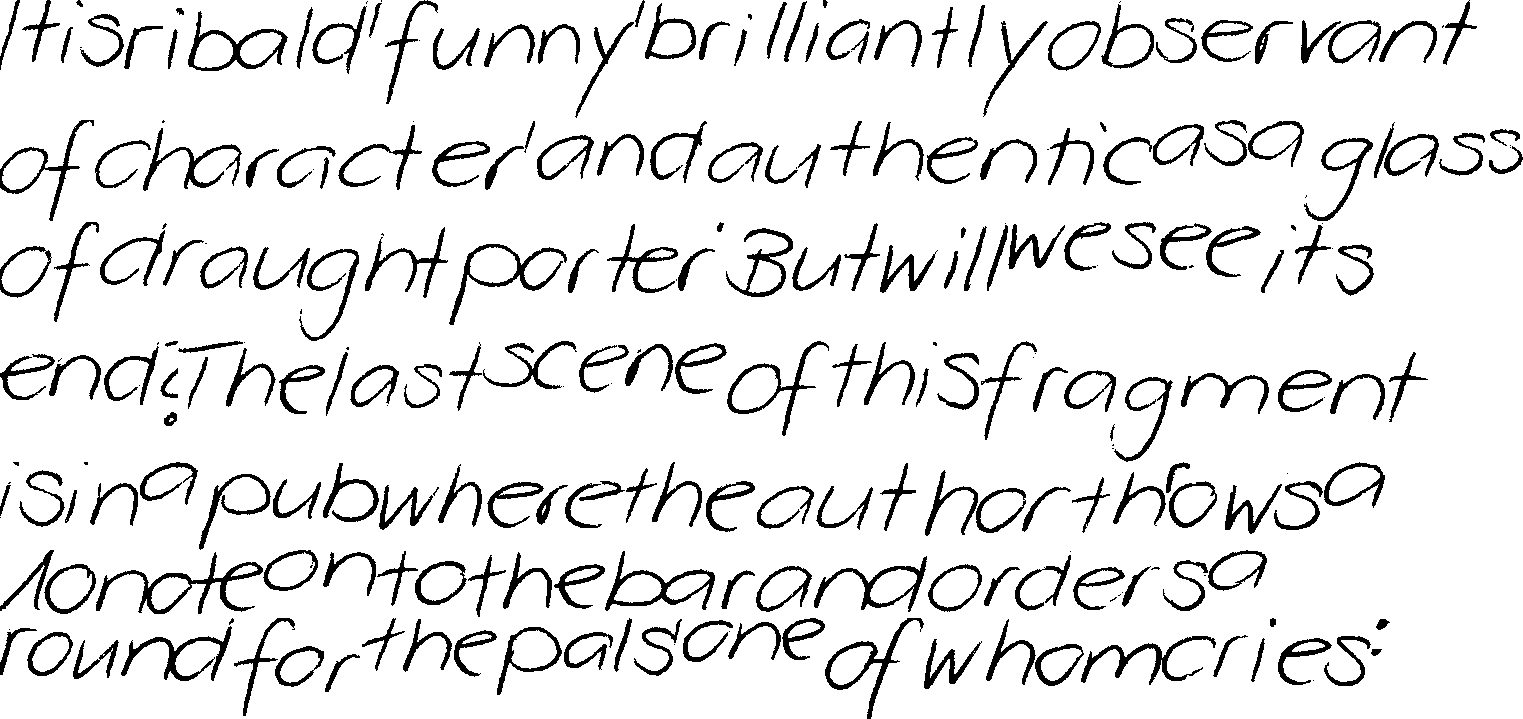 It is ribald, funny, brilliantly observant
of character, and authentic as a glass
of draught porter. But will we see its
end? The last scene of this fragment
is in a pub where the author throws a
10 note onto the bar and orders a
round for the pals, one of whom cries: